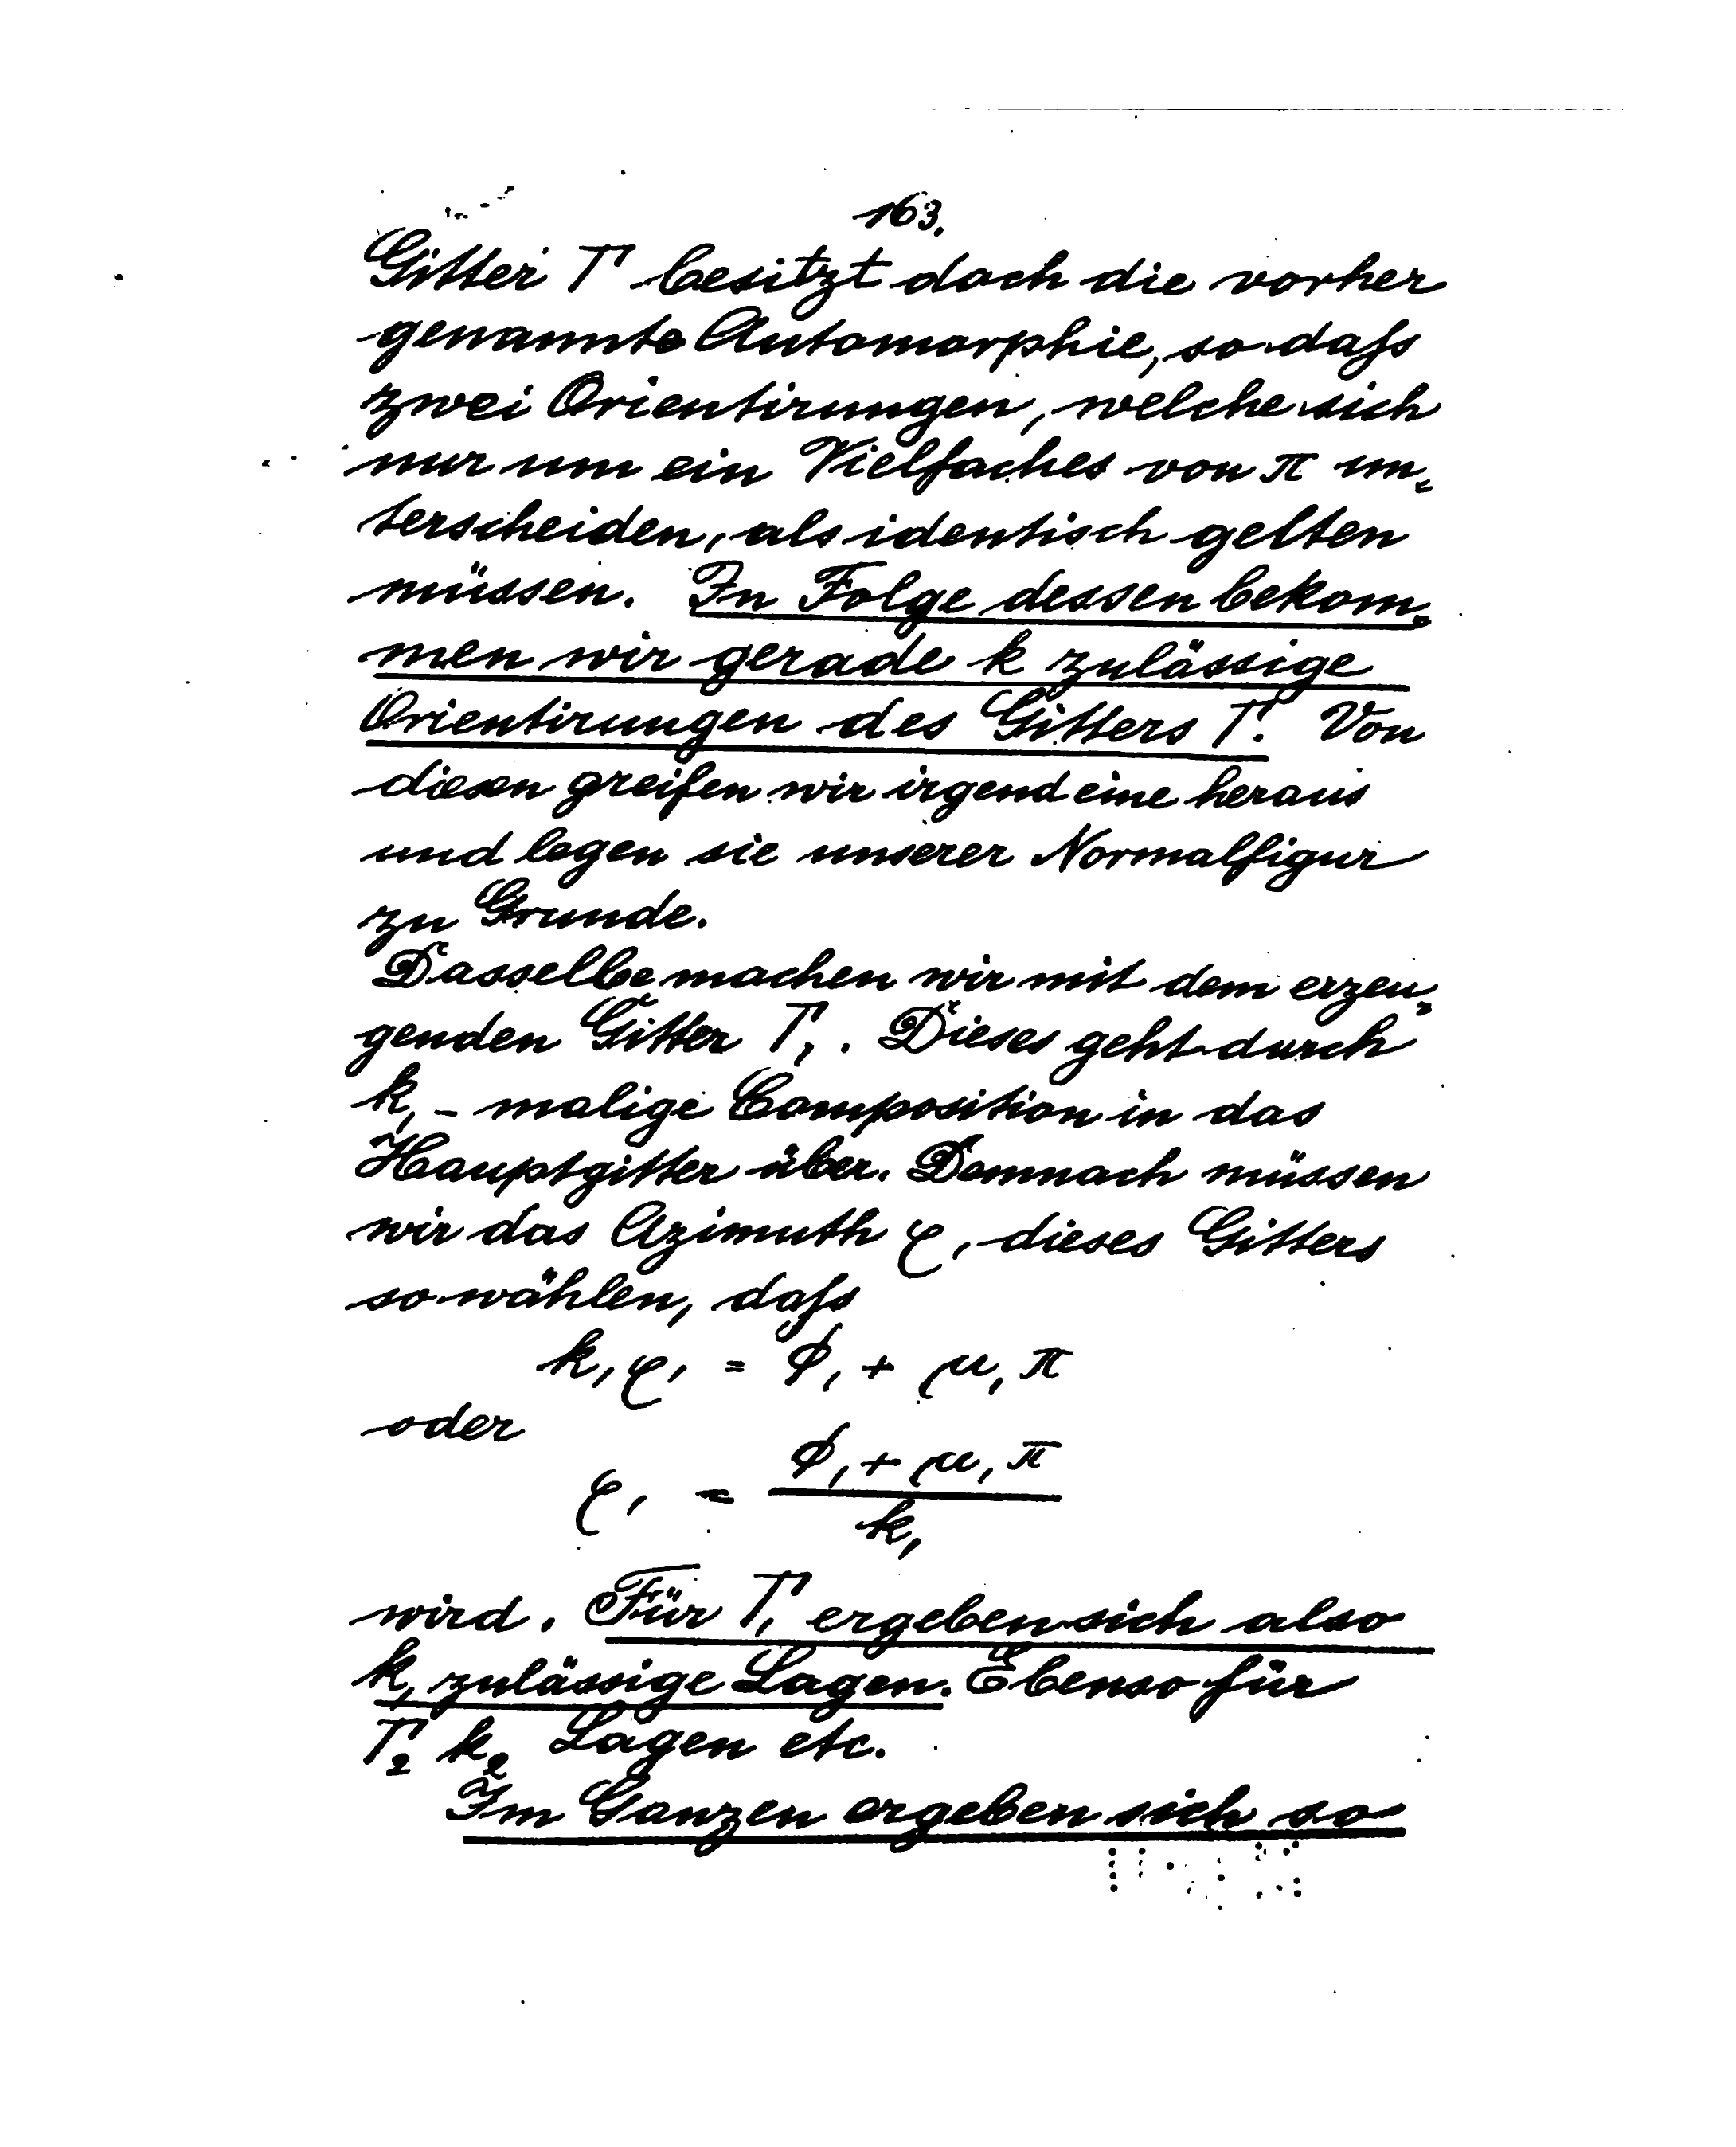 163.
Gitter Γ besitzt doch die vorher
genannte Automorphie, so daſs
zwei Orientirungen, welche sich
nur um ein Vielfaches von π un„
terscheiden, als identisch gelten
müssen. In Folge dessen bekom„
men wir gerade k zulässige
Orientirungen des Gitters Γ. Von
diesen greifen wir irgend eine heraus
und legen sie unserer Normalfigur
zu Grunde.
Dasselbe machen wir mit dem erzeu„
genden Gitter Γ₁. Dieses geht durch
k₁ - malige Composition in das
Hauptgitter über. Demnach müssen
wir das Azimuth φ₁ dieses Gitters
so wählen, daſs
k₁φ₁ = Φ₁ + μ₁π
oder
φ₁ = (Φ₁ + μ₁π) / k₁
wird. Für Γ₁ ergeben sich also
k₁ zulässige Lagen. Ebenso für
Γ₂ k₂ Lagen etc.
Im Ganzen ergeben sich so